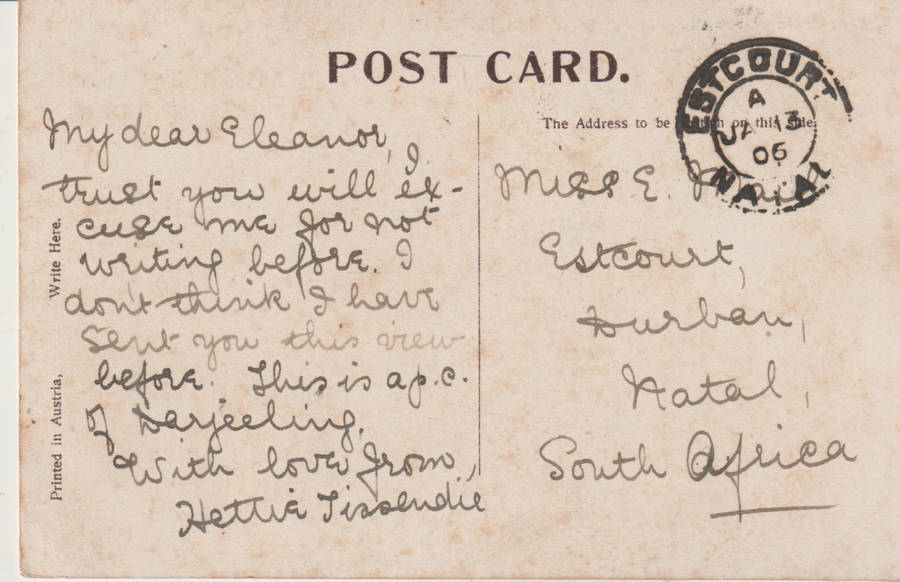 POST CARD.
ESTCOURT
A
JA 13
06
NATAL
The Address to be on this side.
Write Here.
Printed in Austria,
My dear Eleanor,
I
trust you will ex-
cuse me for not
writing before. I
don't think I have
sent you this view
before. This is a p.c.
of Darjeeling.
With love from,
Hettie Tissendie
Miss E.
Estcourt,
Durban,
Natal,
South Africa